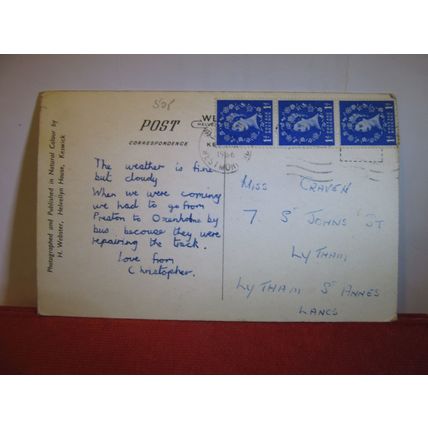 50p
POST
CORRESPONDENCE
Photographed and Published in Natural Colour by
H. Webster, Helvellyn House, Keswick
The weather is fine
but cloudy
When we were coming
we had to go from
Preston to Oxenholme by
bus because they were
repairing the track.
Love from
Christopher.
1d 1d 1d
KE
WESTMOR
MISS CRAVEN
7 ST JOHNS ST
LYTHAM
LYTHAM ST ANNES
LANCS